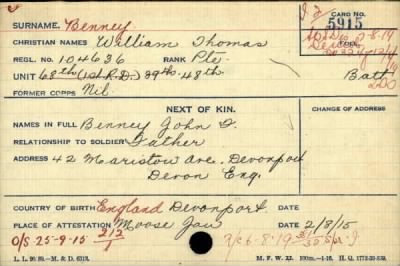 CARD NO.
SURNAME. Benney.
5915
CHRISTIAN NAMES William Thomas
REGL. NO. 104636 RANK Pte.
UNIT 68th (1st R.D.) 39th. 48th. Batt
FORMER CORPS Nil
NEXT OF KIN.
CHANGE OF ADDRESS
NAMES IN FULL Benney John
RELATIONSHIP TO SOLDIER Father
ADDRESS 42 Maristow Ave. Devonport
Devon Eng.
COUNTRY OF BIRTH England Devonport DATE
PLACE OF ATTESTATION Moose Jaw DATE 2/8/15
O/S-25-9-15
6-8-19
M. F. W. 22.